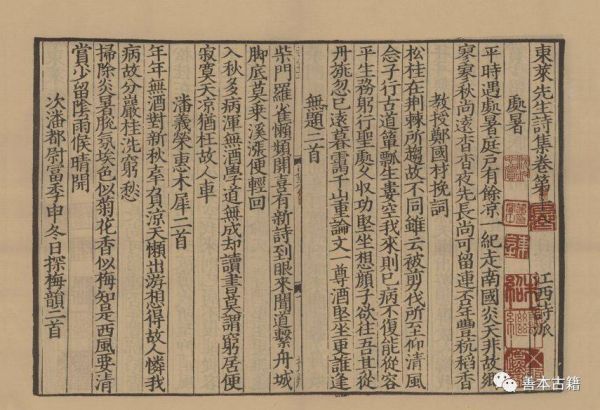 東萊先生詩集卷第 江西詩派
處暑
平時遇處暑庭戶有餘涼一紀走南國炎天非故鄉
寥寥秋尚遠杳杳夜先長尚可留連否年豐秔稻香
教授鄭國材挽詞
松桂在荆棘所趨故不同雖云被翦伐所至仰清風
念子行古道簞瓢生屢空我來則已病不復能從容
平生務躬行聖處久收功堅坐想顏子欲往吾其從
丹旐忽已遠暮靄千山重論文一尊酒堅坐更誰逢
無題二首
柴門羅雀懶頻開喜有新詩到眼來聞道繫舟城
脚底莫乘溪漲便輕回
入秋多病渾無酒學道無成却讀書莫謂窮居便
寂寞天凉猶枉故人車
潘義榮惠木犀二首
年年無酒對新秋亭負涼天懶出游想得故人憐我
病故分巖桂洗窮愁
掃除炎暑脫氛埃色似菊花香似梅知是西風要清
賞少留陰雨候晴開
次潘都尉富季申冬日探梅韻二首
善本古籍